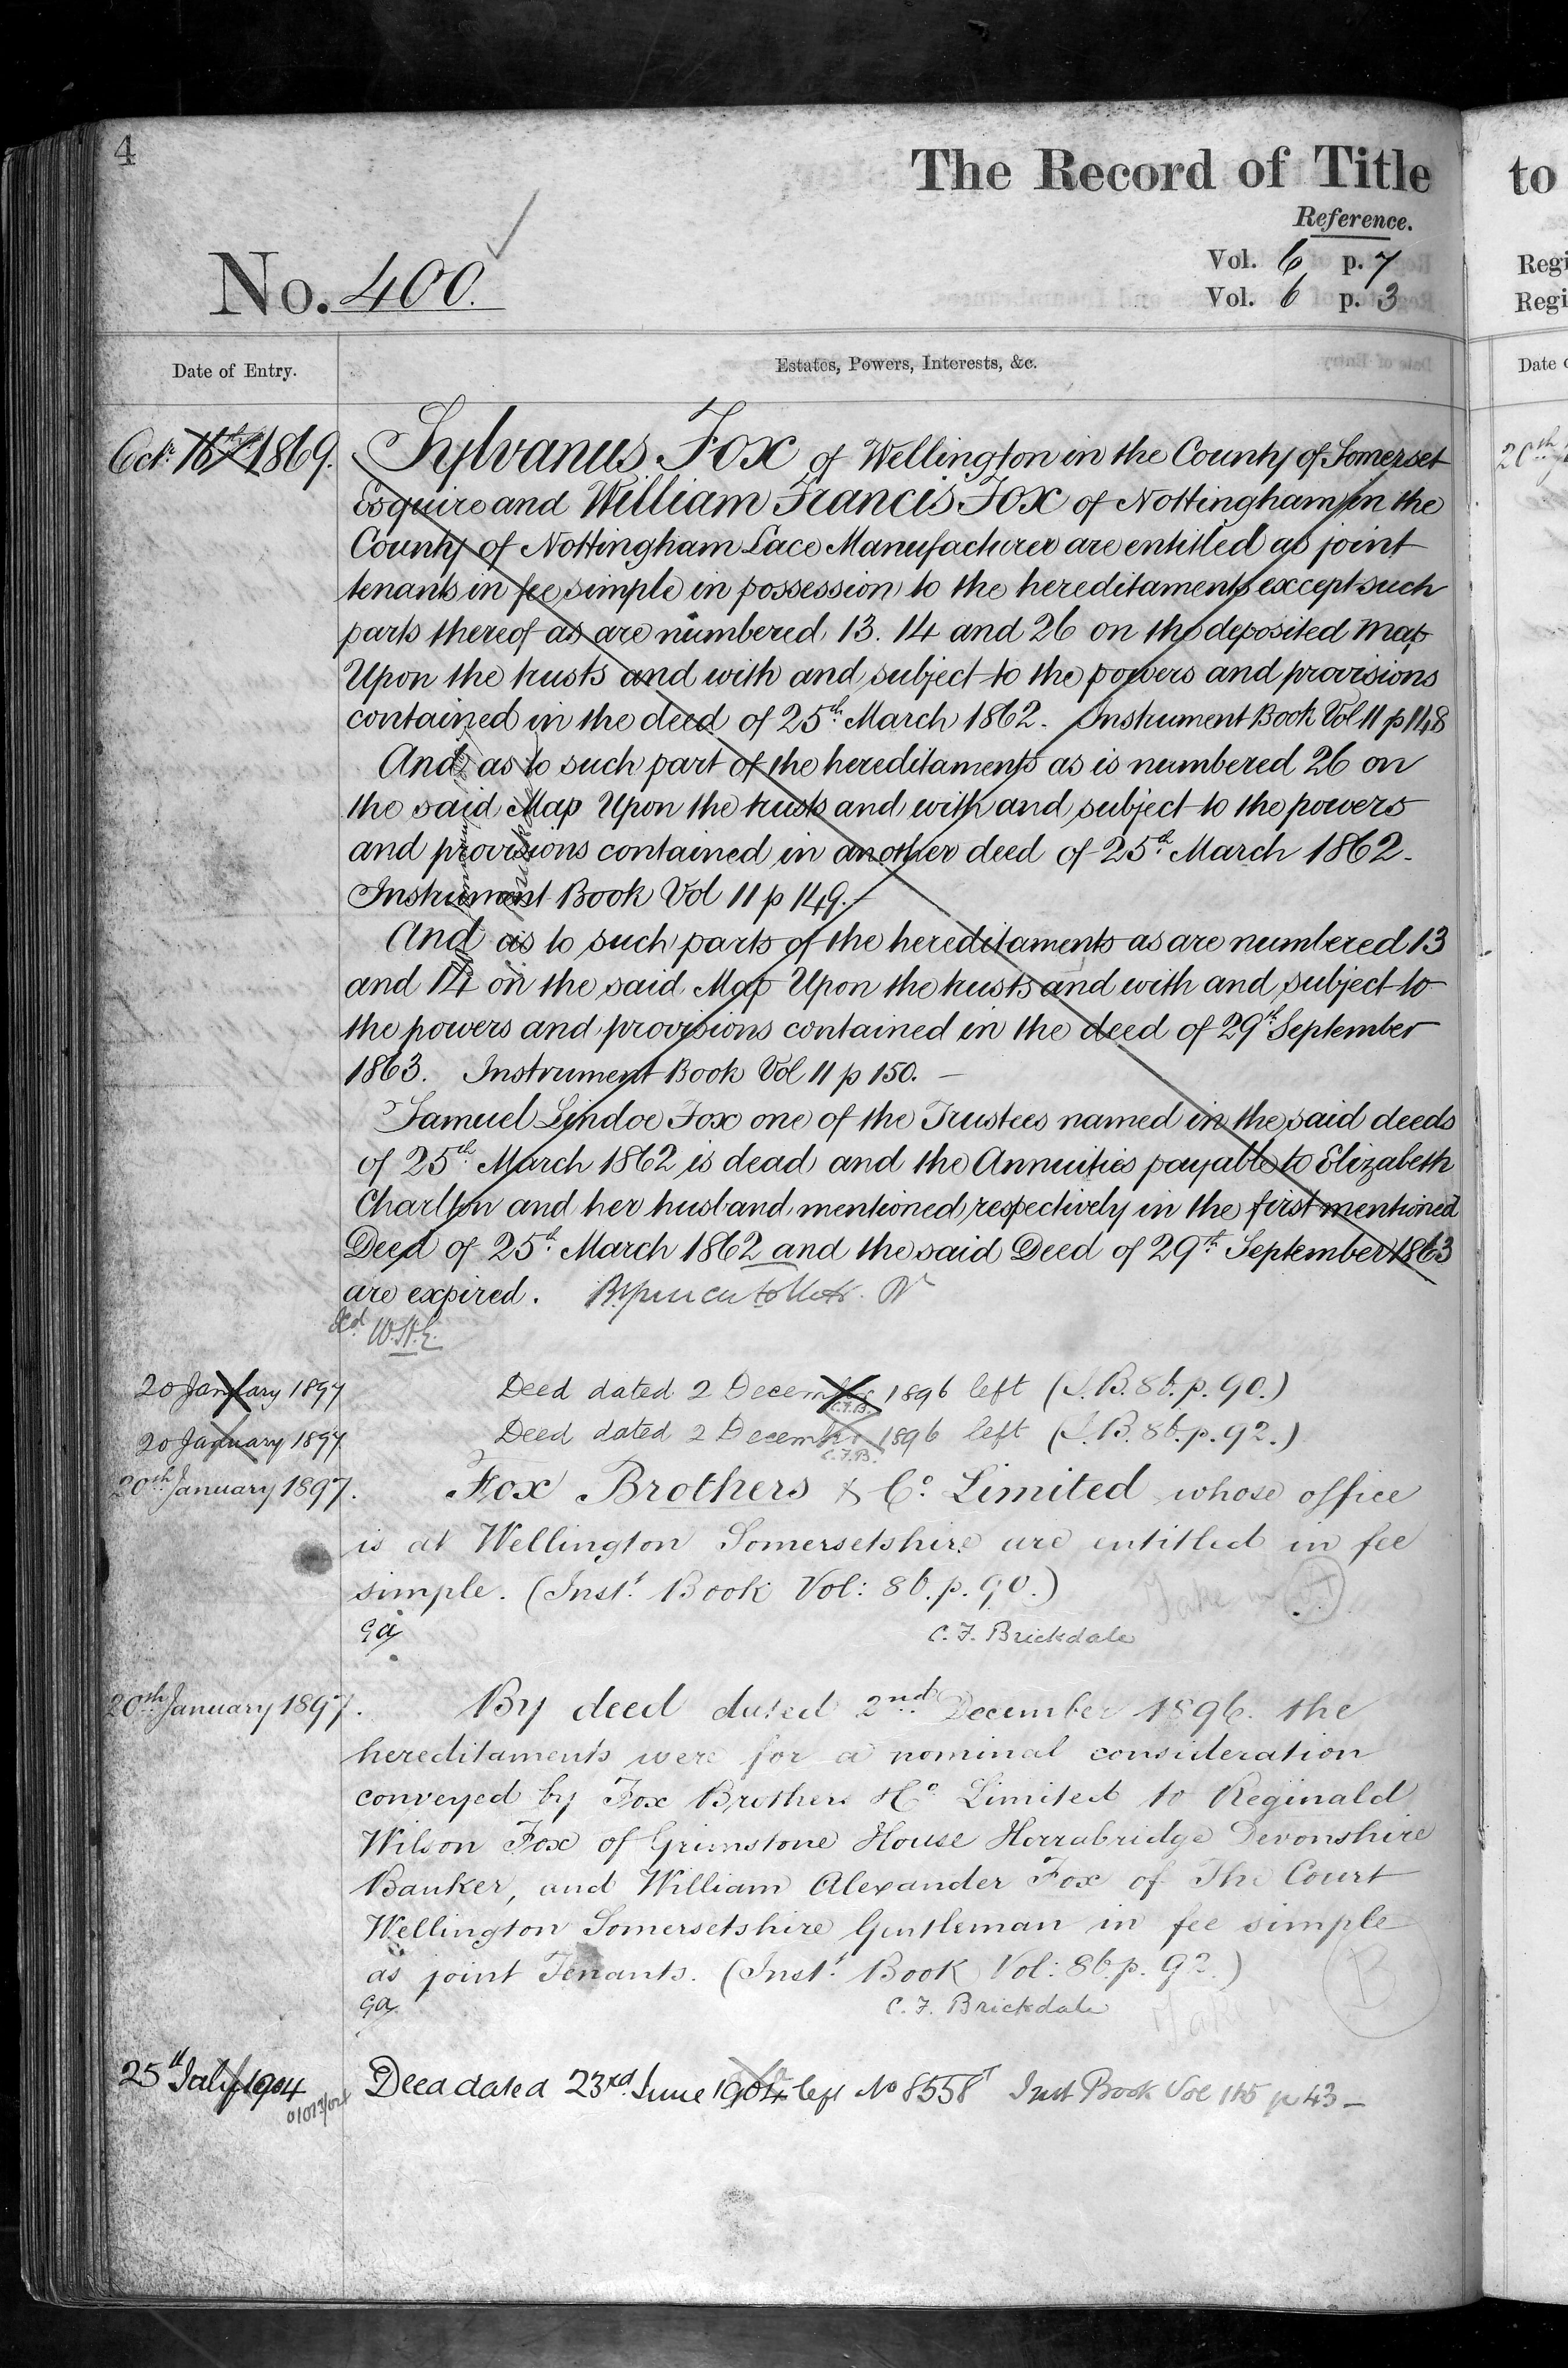 4
The Record of Title
Reference.
No. 400.
Vol. 6 p. 7
Vol. 6 p. 3
Date of Entry.
Estates, Powers, Interests, &c.
Octr. 16th 1869.
Sylvanus Fox of Wellington in the County of Somerset
Esquire and William Francis Fox of Nottingham in the
County of Nottingham Lace Manufacturer are entitled as joint
tenants in fee simple in possession to the hereditaments except such
parts thereof as are numbered 13. 14 and 26 on the deposited Map
Upon the trusts and with and subject to the powers and provisions
contained in the deed of 25th. March 1862. Instrument Book Vol 11 p 148
And as to such part of the hereditaments as is numbered 26 on
the said Map Upon the trusts and with and subject to the powers
and provisions contained in another deed of 25th. March 1862.
Instrument Book Vol 11 p 149.
And as to such parts of the hereditaments as are numbered 13
and 14 on the said Map Upon the trusts and with and subject to
the powers and provisions contained in the deed of 29th. September
1863. Instrument Book Vol 11 p 150.
Samuel Lindoe Fox one of the Trustees named in the said deeds
of 25th. March 1862 is dead and the Annuities payable to Elizabeth
Charlton and her husband mentioned respectively in the first mentioned
Deed of 25th. March 1862 and the said Deed of 29th. September 1863
are expired.
20 January 1897
Deed dated 2 December 1896 left (I.B. 86. p. 90.)
C.F.B.
20 January 1897
Deed dated 2 December 1896 left (I.B. 86. p. 92.)
C.F.B.
20th January 1897.
Fox Brothers & Co. Limited whose office
is at Wellington Somersetshire are entitled in fee
simple. (Inst. Book Vol: 86. p. 90.)
Take in
C. F. Brickdale
20th January 1897.
By deed dated 2nd. December 1896. the
hereditaments were for a nominal consideration
conveyed by Fox Brothers & Co. Limited to Reginald
Wilson Fox of Grimstone House Horrabridge Devonshire
Banker, and William Alexander Fox of The Court
Wellington Somersetshire Gentleman in fee simple
as joint Tenants. (Inst. Book Vol: 86. p. 92.)
B
C. F. Brickdale
25th July 1904
Deed dated 23rd. June 1904 left No 8558 Inst Book Vol 145 p 43
to
Regi
Regi
Date
20th